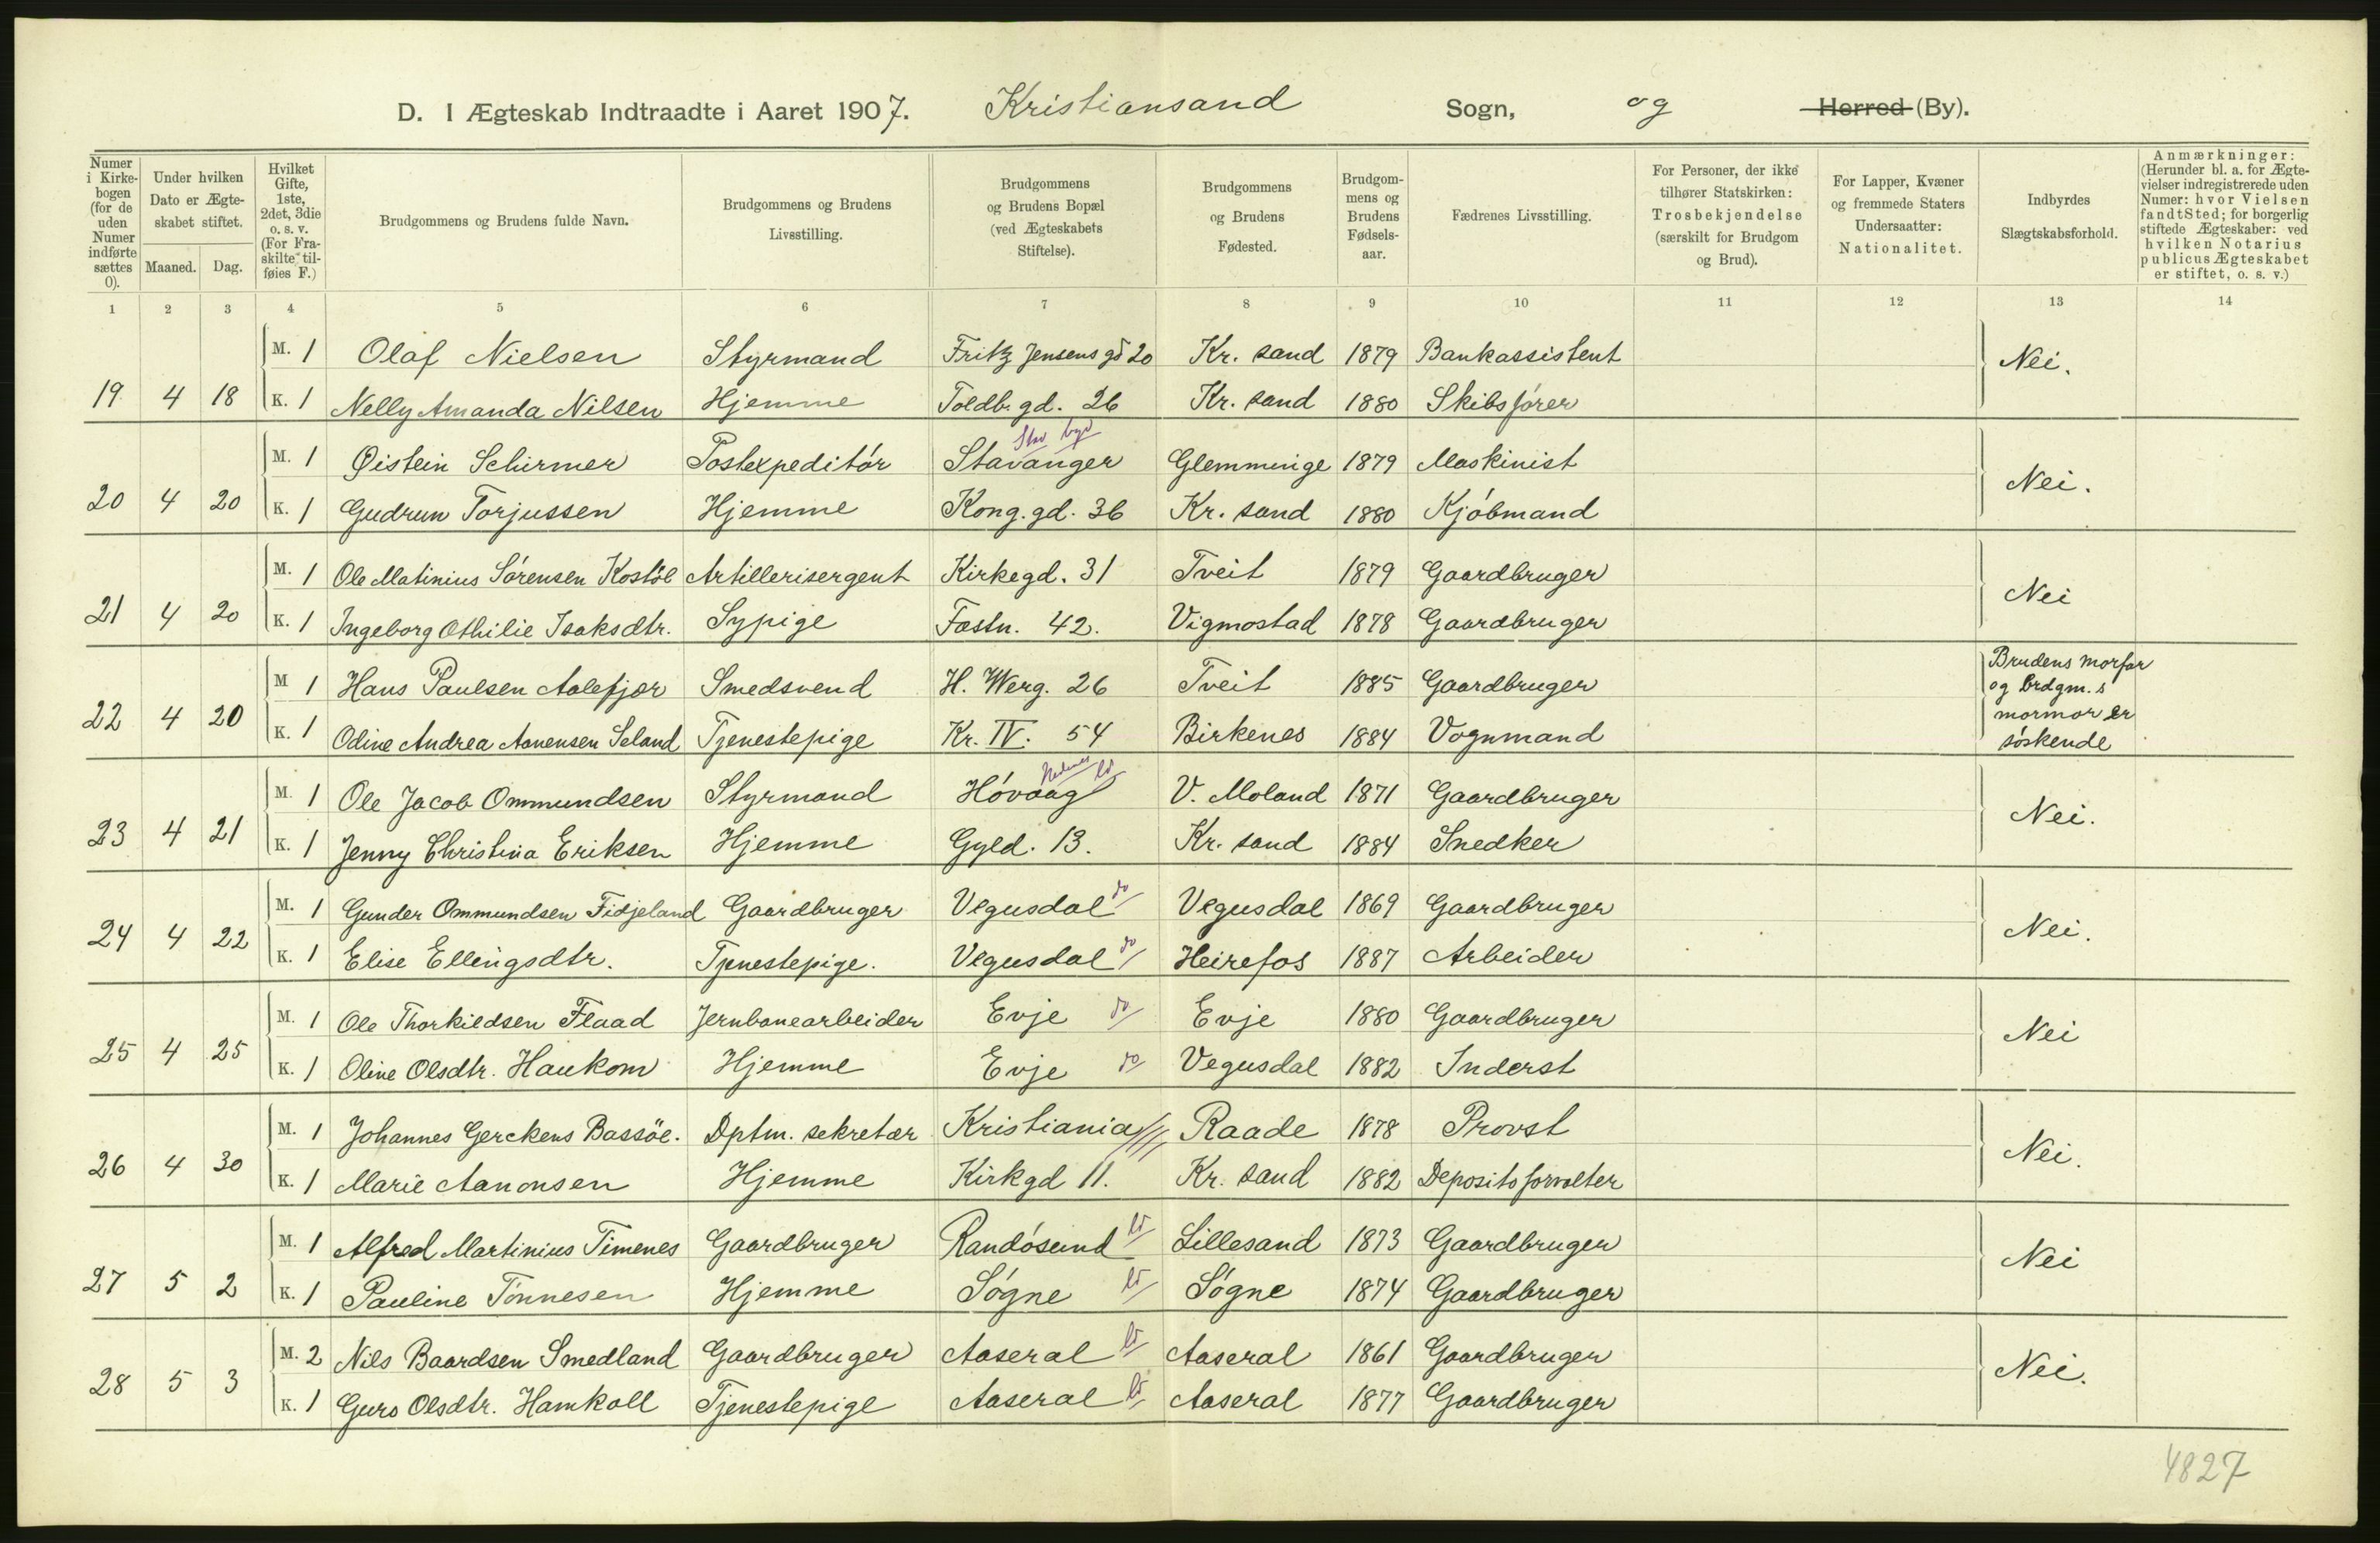 D. I Ægteskab Indtraadte i Aaret 1907. Kristiansand Sogn, og Herred (By).
Numer i Kirkebogen (for de uden Numer indførte sættes 0). Under hvilken Dato er Ægteskabet stiftet. Maaned. Dag. Hvilket Gifte, 1ste, 2det, 3die o. s. v. (For Fraskilte tilføies F.) Brudgommens og Brudens fulde Navn. Brudgommens og Brudens Livsstilling. Brudgommens og Brudens Bopæl (ved Ægteskabets Stiftelse). Brudgommens og Brudens Fødested. Brudgommens og Brudens Fødselsaar. Fædrenes Livsstilling. For Personer, der ikke tilhører Statskirken: Trosbekjendelse (særskilt for Brudgom og Brud). For Lapper, Kvæner og fremmede Staters Undersaatter: Nationalitet. Indbyrdes Slægtskabsforhold. Anmærkninger: (Herunder bl. a. for Ægtevielser indregistrerede uden Numer: hvor Vielsen fandt Sted; for borgerlig stiftede Ægteskaber: ved hvilken Notarius publicus Ægteskabet er stiftet, o. s. v.)
1 2 3 4 5 6 7 8 9 10 11 12 13 14
M. 1 Olaf Nielsen Styrmand Fritz Jensens gd 20 Kr. sand 1879 Bankassistent Nei.
19 4 18 K. 1 Nelly Amanda Nilsen Hjemme Toldb. gd. 26 Kr. sand 1880 Skibsfører
M. 1 Øistein Schirmer Postexpeditør Stavanger Glemminge 1879 Maskinist Nei.
20 4 20 K. 1 Gudrun Torjussen Hjemme Kong. gd. 36 Kr. sand 1880 Kjøbmand
M. 1 Ole Matinius Sørensen Kostøl Artillerisergent Kirkegd. 31 Tveit 1879 Gaardbruger Nei
21 4 20 K. 1 Ingeborg Othilie Isaksdtr. Sypige Fastn. 42. Vigmostad 1878 Gaardbruger
M 1 Hans Paulsen Aalefjær Smedsvend H. Werg. 26 Tveit 1885 Gaardbruger Brudens morfar og brdgm.s
22 4 20 K. 1 Odine Andrea Aanensen Seland Tjenestepige Kr. IV. 54 Birkenes 1884 Vognmand mormor er søskende
M. 1 Ole Jacob Ommundsen Styrmand Høvaag V. Moland 1871 Gaardbruger Nei.
23 4 21 K. 1 Jenny Christina Eriksen Hjemme Gyld. 13. Kr. sand 1884 Snedker
M. 1 Gunder Ommundsen Fidjeland Gaardbruger Vegusdal Vegusdal 1869 Gaardbruger Nei.
24 4 22 K. 1 Elise Ellingsdtr. Tjenestepige. Vegusdal Heirefos 1887 Arbeider
M. 1 Ole Thorkildsen Flaad Jernbanearbeider Evje Evje 1880 Gaardbruger Nei
25 4 25 K. 1 Oline Olsdtr. Haukom Hjemme Evje Vegusdal 1882 Inderst
M. 1 Johannes Gerckens Bassøe. Dptm. sekretær Kristiania Raade 1878 Provst Nei.
26 4 30 K. 1 Marie Aanonsen Hjemme Kirkgd 11. Kr. sand 1882 Depositoforvalter
M. 1 Alfred Martinius Timenes Gaardbruger Randøsund Lillesand 1873 Gaardbruger Nei
27 5 2 K. 1 Pauline Tønnesen Hjemme Søgne Søgne 1874 Gaardbruger
M. 2 Nils Baardsen Smedland Gaardbruger Aaseral Aaseral 1861 Gaardbruger Nei.
28 5 3 K. 1 Guro Olsdtr. Hamkoll Tjenestepige Aaseral Aaseral 1877 Gaardbruger
4827